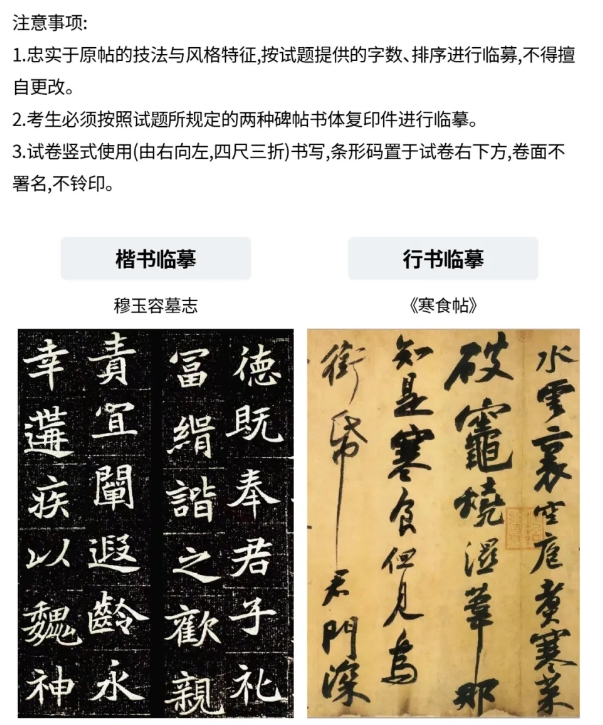 注意事项:
1.忠实于原帖的技法与风格特征,按试题提供的字数、排序进行临募,不得擅
自更改。
2.考生必须按照试题所规定的两种碑帖书体复印件进行临摹。
3.试卷竖式使用(由右向左,四尺三折)书写,条形码置于试卷右下方,卷面不
署名,不铃印。
楷书临摹
行书临摹
穆玉容墓志
《寒食帖》
德既奉君子礼
冨缉諧之歡親
責宜闡遐齡永
幸遘疾以魏神
水雲裏空庖煮寒菜
破竈燒濕葦那
知是寒食但見烏
銜帋君門深